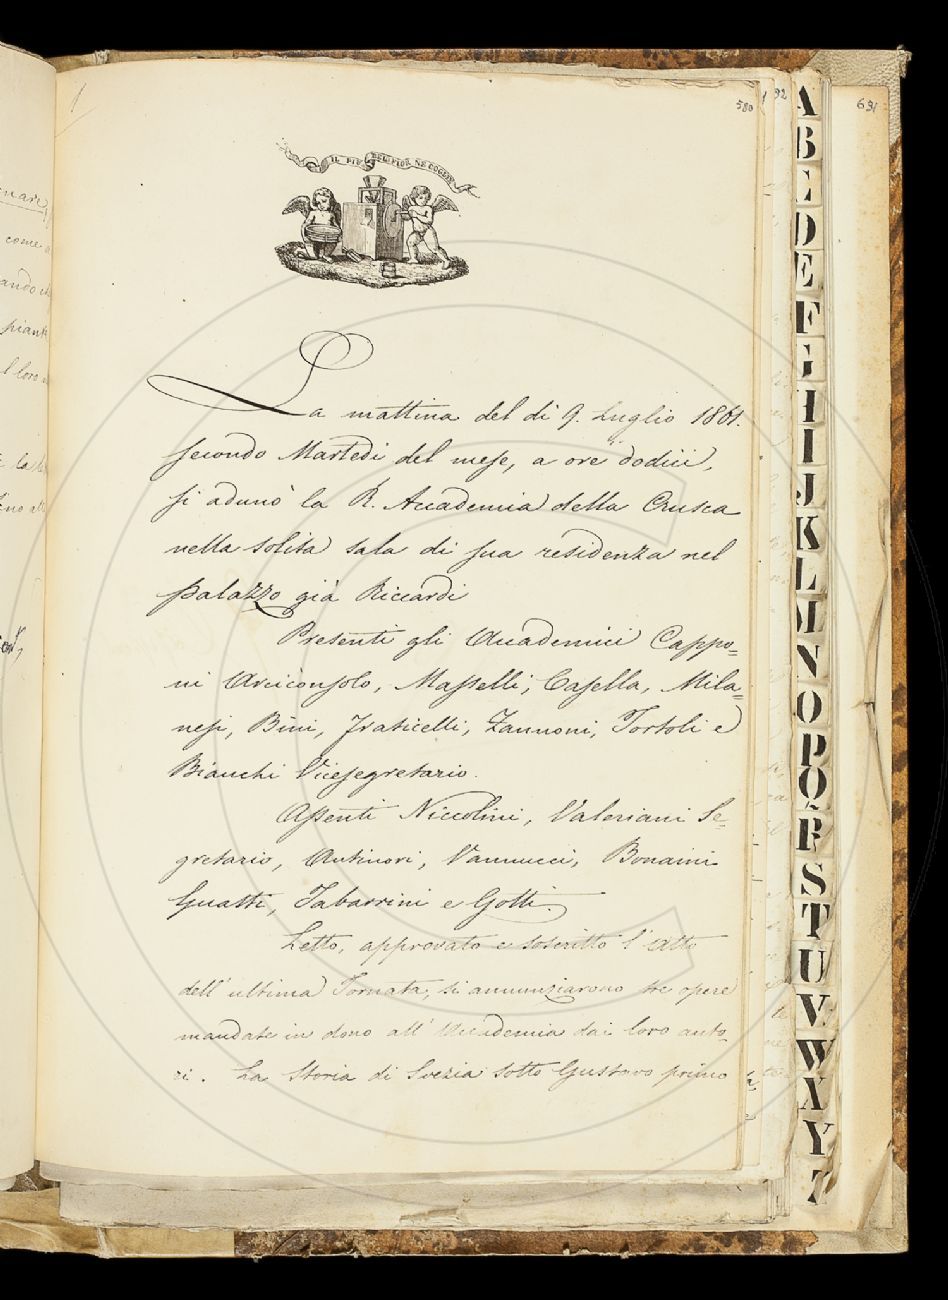 1
580
92
691
IL PIÙ BEL FIOR NE COGLIE
La mattina del dì 9. Luglio 1861.
secondo Martedì del mese, a ore dodici,
si adunò la R. Accademia della Crusca
nella solita sala di sua residenza nel
palazzo già Riccardi
Presenti gli Accademici Cappo=
ni Arciconsolo, Masselli, Casella, Mila=
nesi, Bini, Fraticelli, Zannoni, Tortoli e
Bianchi Vicesegretario.
Assenti Niccolini, Valeriani Se=
gretario, Antinori, Vannucci, Bonaini
Guasti, Tabarrini e Gotti.
Letto, approvato e soscritto l'atto
dell'ultima Tornata, si annunziarono tre opere
mandate in dono all'Accademia dai loro auto=
ri. La Storia di Svezia sotto Gustavo primo
come
piante
l loro
A
B
C
D
E
F
G
H
I
J
K
L
M
N
O
P
Q
R
S
T
U
V
W
X
Y
Z